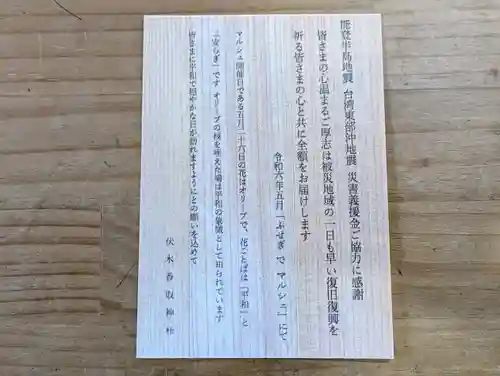 能登半島地震 台湾東部沖地震 災害義援金ご協力に感謝
皆さまの心温まるご厚志は被災地域の一日も早い復旧復興を
祈る皆さまの心と共に全額をお届けします
令和六年五月「ふせぎ で マルシェ」にて
マルシェ開催日である五月二十六日の花はオリーブで、花ことばは「平和」と
「安らぎ」です オリーブの枝を咥えた鳩は平和の象徴として知られています
皆さまに平和で穏やかな日が訪れますようにとの願いを込めて
伏木香取神社